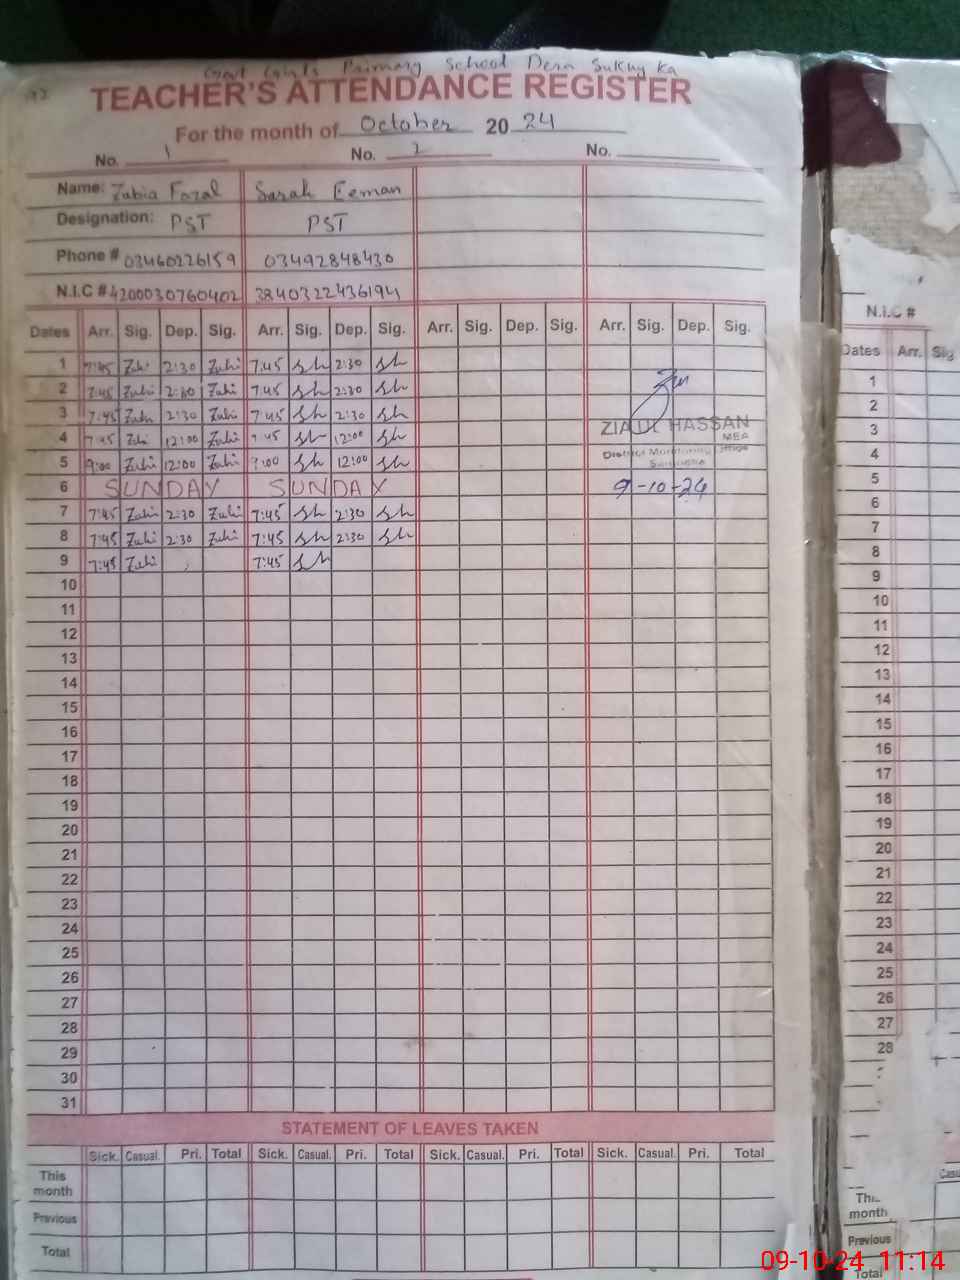 Govt Girls Primary School Dera Sukhy Ka
TEACHER'S ATTENDANCE REGISTER
For the month of October 20 24
No. 1 No. 2 No.
Name: Zabia Fazal Sarah Eeman
Designation: PST PST
Phone # 03460226159 03492848430
N.I.C # 4200030760402 3840322436194
Dates Arr. Sig. Dep. Sig. Arr. Sig. Dep. Sig. Arr. Sig. Dep. Sig. Arr. Sig. Dep. Sig.
1 7:45 Zabi 2:30 Zabi 7:45 Sh 2:30 Sh
2 7:45 Zabi 2:30 Zabi 7:45 Sh 2:30 Sh
3 7:45 Zabi 2:30 Zabi 7:45 Sh 2:30 Sh
4 7:45 Zabi 12:00 Zabi 7:45 Sh 12:00 Sh
5 9:00 Zabi 12:00 Zabi 9:00 Sh 12:00 Sh
6 SUNDAY SUNDAY
7 7:45 Zabi 2:30 Zabi 7:45 Sh 2:30 Sh
8 7:45 Zabi 2:30 Zabi 7:45 Sh 2:30 Sh
9 7:45 Zabi 7:45 Sh
10
11
12
13
14
15
16
17
18
19
20
21
22
23
24
25
26
27
28
29
30
31
ZIA UL HASSAN
MEA
District Monitoring Office
Sargodha
9-10-24
STATEMENT OF LEAVES TAKEN
Sick. Casual. Pri. Total Sick. Casual. Pri. Total Sick. Casual. Pri. Total Sick. Casual. Pri. Total
This
month
Previous
Total
N.I.C #
Dates Arr. Sig
1
2
3
4
5
6
7
8
9
10
11
12
13
14
15
16
17
18
19
20
21
22
23
24
25
26
27
28
month
Previous
Total
09-10-24 11:14